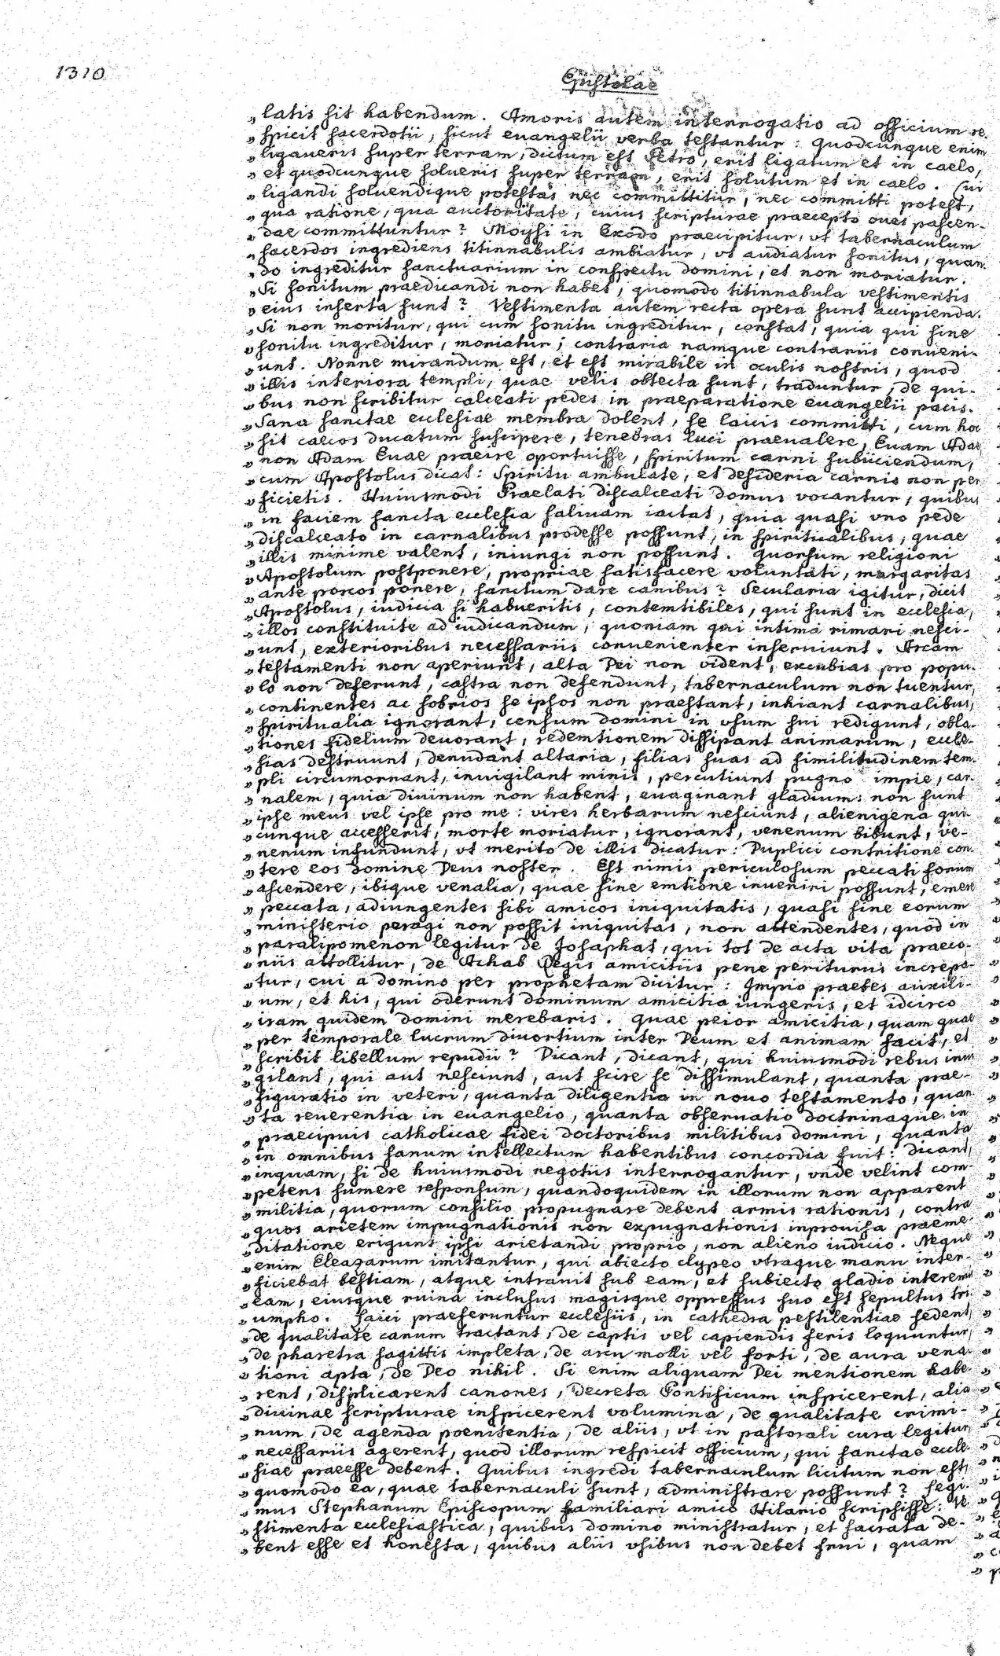 1310
Epistolae
„ latis sit habendum. Amoris autem interrogatio ad officium re-
„ spicit sacerdotii, sicut euangelii verba testantur: Quodcunque enim
„ ligaueris super terram, dictum est Petro, erit ligatum et in caelo,
„ et quodcunque solueris super terram, erit solutum et in caelo. Cui
„ ligandi soluendique potestas nec committitur, nec committi potest,
„ qua ratione, qua auctoritate, cuius scripturae praecepto oues pascen-
„ dae committuntur? Moysi in Exodo praecipitur, vt tabernaculum
„ sacerdos ingrediens titinnabulis ambiatur, vt audiatur sonitus, quan-
„ do ingreditur sanctuarium in conspectu domini, et non moriatur.
„ Si sonitum praedicandi non habet, quomodo titinnabula vestimentis
„ eius inserta sunt? Vestimenta autem recta opera sunt accipienda.
„ Si non moritur, qui cum sonitu ingreditur, constat, quia qui sine
„ sonitu ingreditur, moriatur; contraria namque contrariis conueni-
„ unt. Nonne mirandum est, et est mirabile in oculis nostris, quod
„ illis interiora templi, quae velis obtecta sunt, traduntur, de qui-
„ bus non scribitur calceati pedes in praeparatione euangelii pacis.
„ Sana sanctae ecclesiae membra dolent, se laicis committi, cum hoc
„ sit caecos ducatum suscipere, tenebras luci praeualere, Euam Adae
„ non Adam Euae praeire oportuisse, spiritum carni subiiciendum,
„ cum Apostolus dicat: Spiritu ambulate, et desideria carnis non per-
„ ficietis. Huiusmodi Praelati discalceati domus vocantur, quibus
„ in faciem sancta ecclesia saliuam iactat, quia quasi vno pede
„ discalceato in carnalibus prodesse possunt, in spiritualibus, quae
„ illis minime valent, iniungi non possunt. Quorsum religioni
„ Apostolum postponere, propriae satisfacere voluntati, margaritas
„ ante porcos ponere, sanctum dare canibus? Secularia igitur, dicit
„ Apostolus, iudicia si habueritis, contemtibiles, qui sunt in ecclesia,
„ illos constituite ad iudicandum, quoniam qui intima rimari nesci-
„ unt, exterioribus necessariis conuenienter inseruiunt. Arcam
„ testamenti non aperiunt, alta Dei non vident, excubias pro popu-
„ lo non deferunt, castra non defendunt, tabernaculum non tuentur,
„ continentes ac sobrios se ipsos non praestant, inhiant carnalibus,
„ spiritualia ignorant, censum domini in vsum sui redigunt, obla-
„ tiones fidelium deuorant, redemtionem dissipant animarum, eccle-
„ sias destruunt, denudant altaria, filias suas ad similitudinem tem-
„ pli circumornant, inuigilant minis, percutiunt pugno impie, car-
„ nalem, quia diuinum non habent, euaginant gladium; non sunt
„ ipse meus vel ipse pro me: vires herbarum nesciunt, alienigena qui-
„ cunque accesserit, morte moriatur, ignorant, venenum bibunt, ve-
„ nenum infundunt, vt merito de illis dicatur: Duplici contritione con-
„ tere eos domine Deus noster. Est nimis periculosum peccati forum
„ ascendere, ibique venalia, quae sine emtione inueniri possunt, emere
„ peccata, adiungentes sibi amicos iniquitatis, quasi sine eorum
„ ministerio peragi non possit iniquitas, non attendentes, quod in
„ paralipomenon legitur de Josaphat, qui tot de acta vita praeco-
„ niis attollitur, de Achab Regis amicitiis pene periturus increpa-
„ tur, cui a domino per prophetam dicitur: Impio praebes auxili-
„ um, et his, qui oderunt dominum amicitia iungeris, et idcirco
„ iram quidem domini merebaris. Quae peior amicitia, quam quae
„ per temporale lucrum diuortium inter Deum et animam facit, et
„ scribit libellum repudii? Dicant, dicant, qui huiusmodi rebus inui-
„ gilant, qui aut nesciunt, aut scire se dissimulant, quanta prae-
„ figuratio in veteri, quanta diligentia in nouo testamento, quan-
„ ta reuerentia in euangelio, quanta obseruatio doctrinaque in
„ praecipuis catholicae fidei doctoribus militibus domini, quanta
„ in omnibus sanum intellectum habentibus concordia fuit: Dicant,
„ inquam, si de huiusmodi negotiis interrogantur, vnde velint com-
„ petens sumere responsum, quandoquidem in illorum non apparent
„ militia, quorum consilio propugnare debent armis rationis, contra
„ quos arietem impugnationis non expugnationis inprouisa praeme-
„ ditatione erigunt ipsi arietandi proprio, non alieno iudicio. Neque
„ enim Eleazarum imitantur, qui abiecto clypeo vtraque manu inter-
„ ficiebat bestiam, atque intrauit sub eam, et subiecto gladio interemit
„ eam, eiusque ruina inclusus magisque oppressus suo est sepultus tri-
„ umpho. Laici praeferuntur ecclesiis, in cathedra pestilentiae sedent,
„ de qualitate canum tractant, de captis vel capiendis feris loquuntur,
„ de pharetra sagittis impleta, de arcu molli vel forti, de aura vena-
„ tioni apta, de Deo nihil. Si enim aliquam Dei mentionem habe-
„ rent, displicarent canones, Decreta Pontificum inspicerent, alia
„ diuinae scripturae inspicerent volumina, de qualitate crimi-
„ num, de agenda poenitentia, de aliis, vt in pastorali cura legitur,
„ necessariis agerent, quod illorum respicit officium, qui sanctae eccle-
„ siae praeesse debent. Quibus ingredi tabernaculum licitum non est,
„ quomodo ea, quae tabernaculi sunt, administrare possunt? Legi-
„ mus Stephanum Episcopum familiari amico Hilario scripsisse: Ve-
„ stimenta ecclesiastica, quibus domino ministratur, et sacrata de-
„ bent esse et honesta, quibus aliis vsibus non debet frui, quam